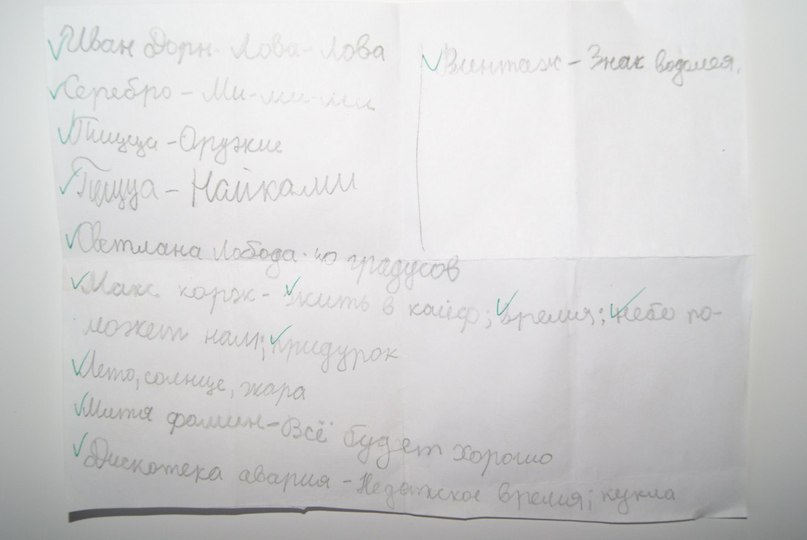 Иван Дорн - Лова-Лова
Серебро - Ми-ми-ми
Пицца - Оружие
Пицца - Найками
Светлана Лобода - 40 градусов
Макс корж - жить в кайф; время; небо по-
может нам; придурок
Лето, солнце, жара
Митя фомин - Всё будет хорошо
Дискотека авария - Недетское время; кукла
Винтаж - Знак водолея.